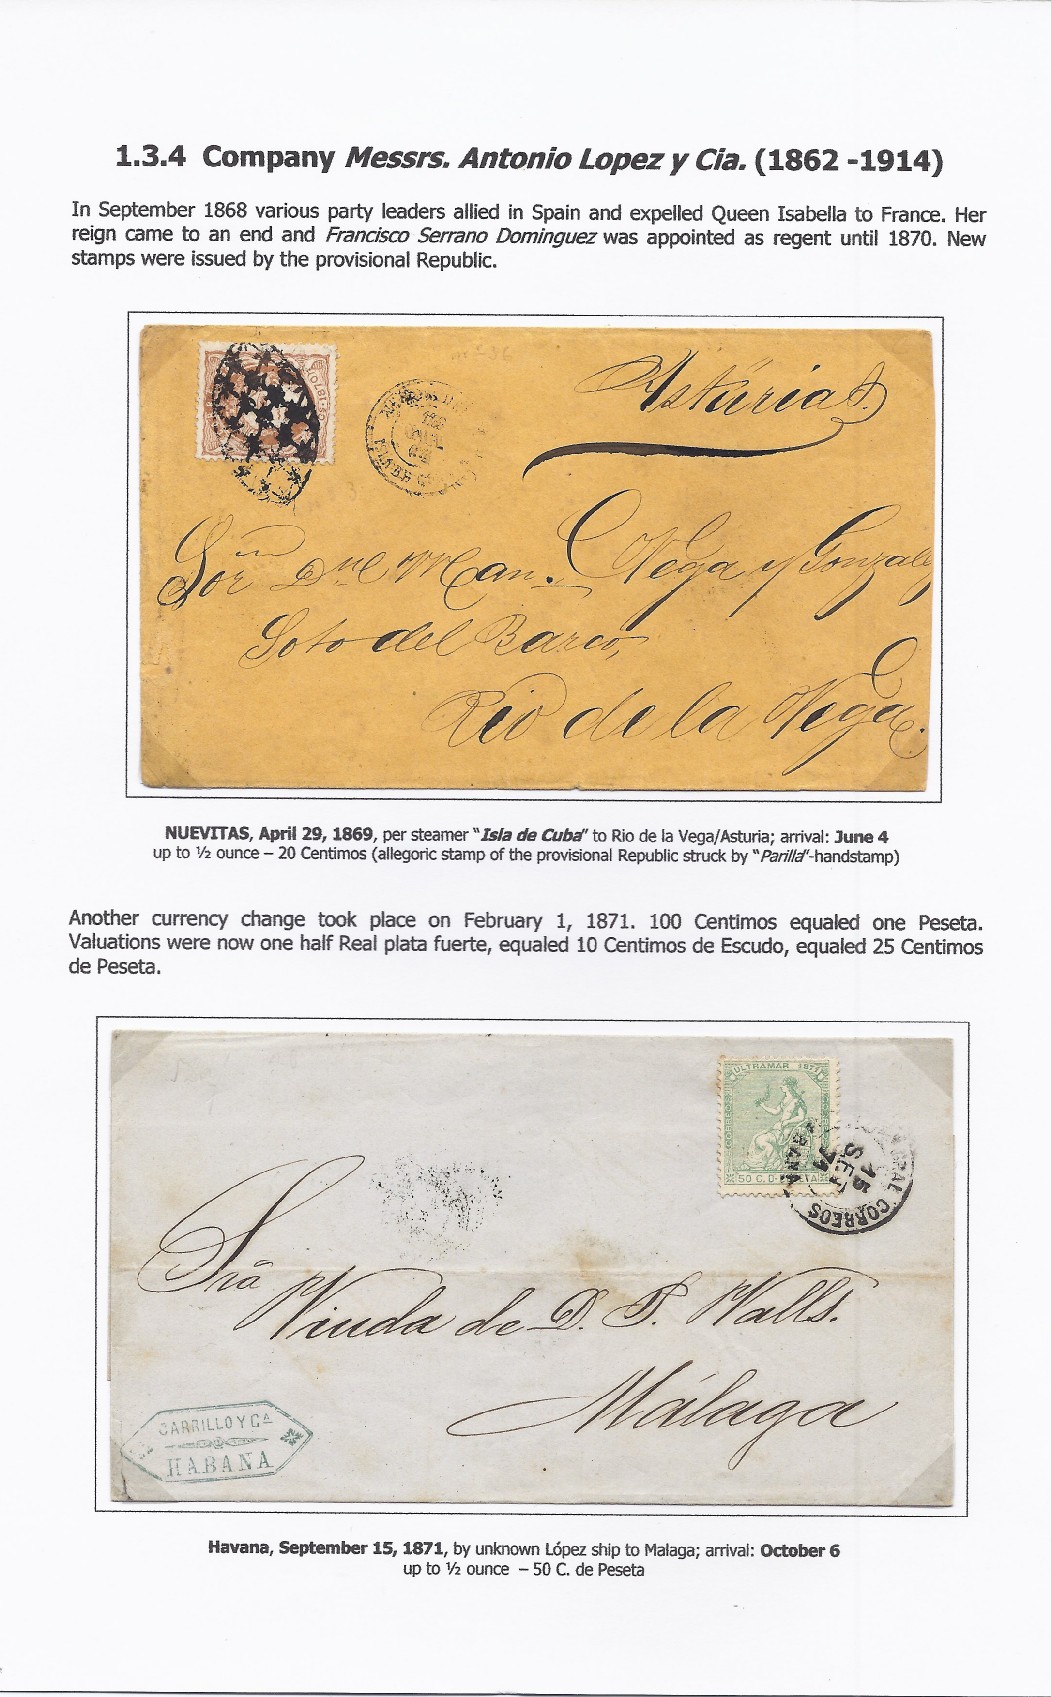 1.3.4 Company Messrs. Antonio Lopez y Cia. (1862 -1914)
In September 1868 various party leaders allied in Spain and expelled Queen Isabella to France. Her
reign came to an end and Francisco Serrano Dominguez was appointed as regent until 1870. New
stamps were issued by the provisional Republic.
Astúrias.
Sor Dn Man. Vega y Gonzalez
Soto del Barco,
Rio de la Vega.
NUEVITAS, April 29, 1869, per steamer "Isla de Cuba" to Rio de la Vega/Asturia; arrival: June 4
up to ½ ounce – 20 Centimos (allegoric stamp of the provisional Republic struck by "Parilla"-handstamp)
Another currency change took place on February 1, 1871. 100 Centimos equaled one Peseta.
Valuations were now one half Real plata fuerte, equaled 10 Centimos de Escudo, equaled 25 Centimos
de Peseta.
ULTRAMAR 1871
CORREOS
50 C. D
15
SET
71
CORREOS
Sra
Viuda de D. P. Walls.
Málaga
CARRILLO Y Ca
HABANA
Havana, September 15, 1871, by unknown López ship to Malaga; arrival: October 6
up to ½ ounce – 50 C. de Peseta